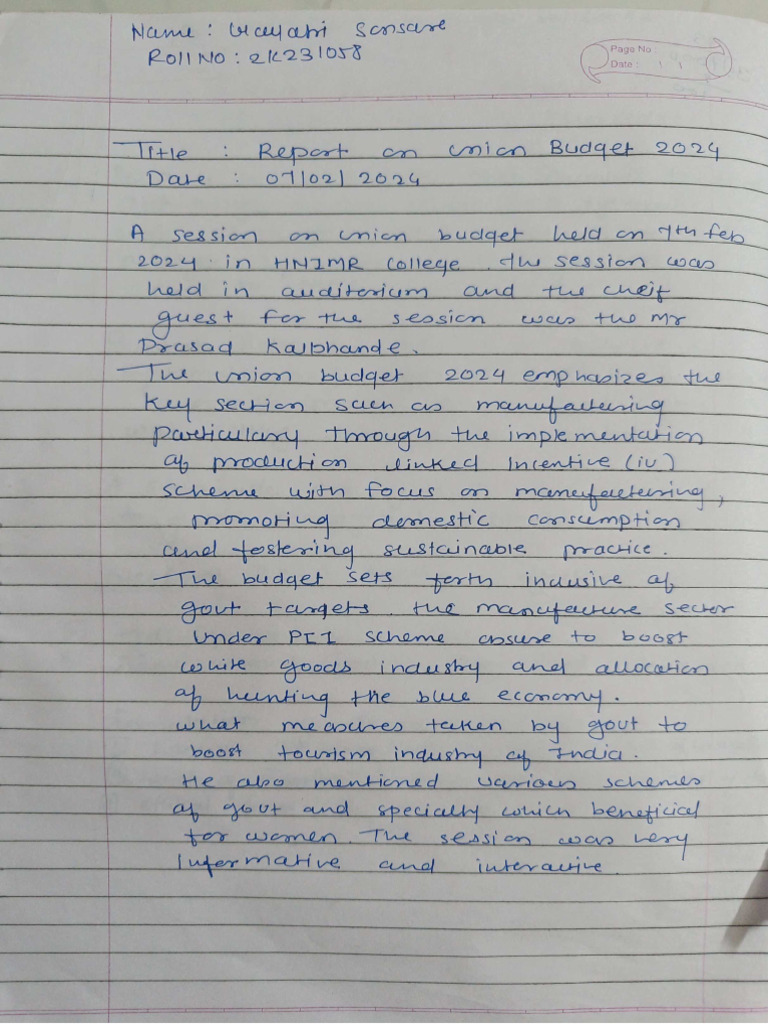 Name : Gayatri Sansare
Roll No : 2K231058
Page No
Date :
Title : Report on Union Budget 2024
Date : 07/02/2024
A session on union budget held on 7th feb
2024 in HNIMR College. the session was
held in auditorium and the cheif
guest for the session was the Mr
Prasad Kalbhande.
The union budget 2024 emphasizes the
key section such as manufacturing
particulary through the implementation
of production linked Incentive (iv)
scheme with focus on manufacturing,
promoting domestic consumption
and fostering sustainable practice.
The budget sets forth inclusive of
govt targets. the manufacture sector
Under PLI scheme to boost
white goods industry and allocation
of hunting the blue economy.
what measures taken by govt to
boost tourism industry of India.
He also mentioned various schemes
of govt and specialty which beneficial
for women. The session was very
Informative and interactive.